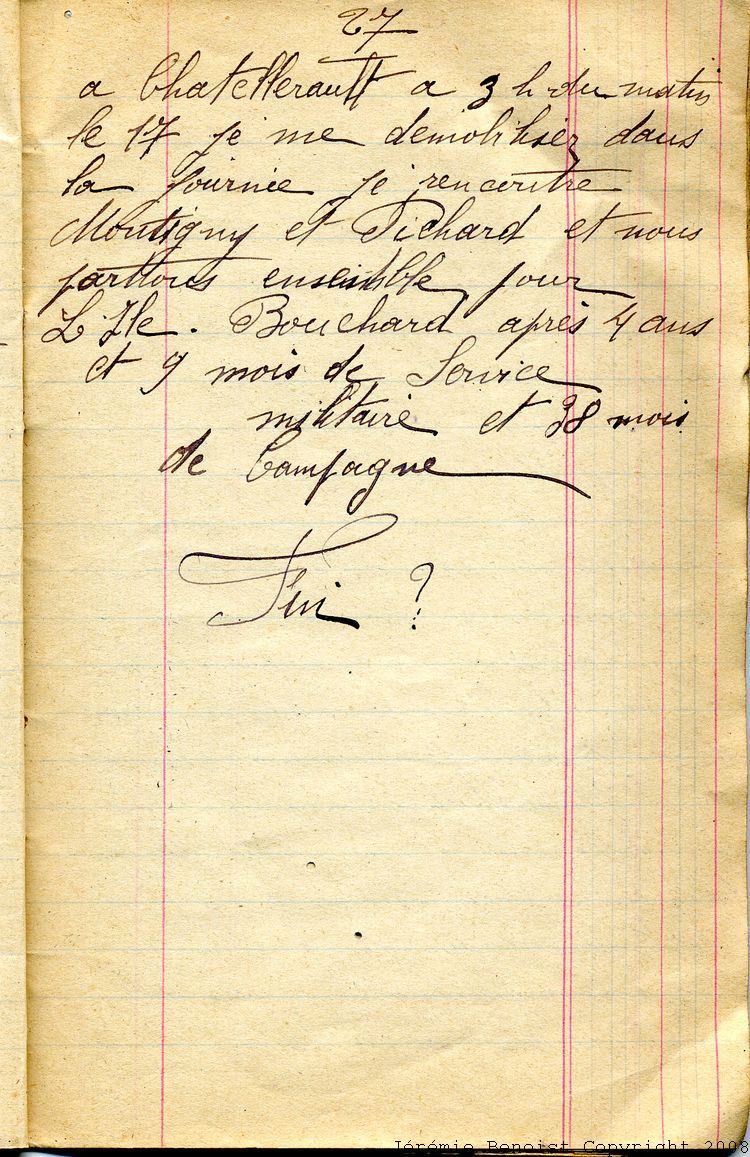 27
a Chatellerautt a 3 h du matin
le 17 je me demobilisez dans
la journée je rencontre
Montigny et Pichard et nous
partons ensemble pour
L'Ile. Bouchard après 4 ans
et 9 mois de Service
militaire et 38 mois
de Campagne
Fin ?
Jérémie Benoist Copyright 2008